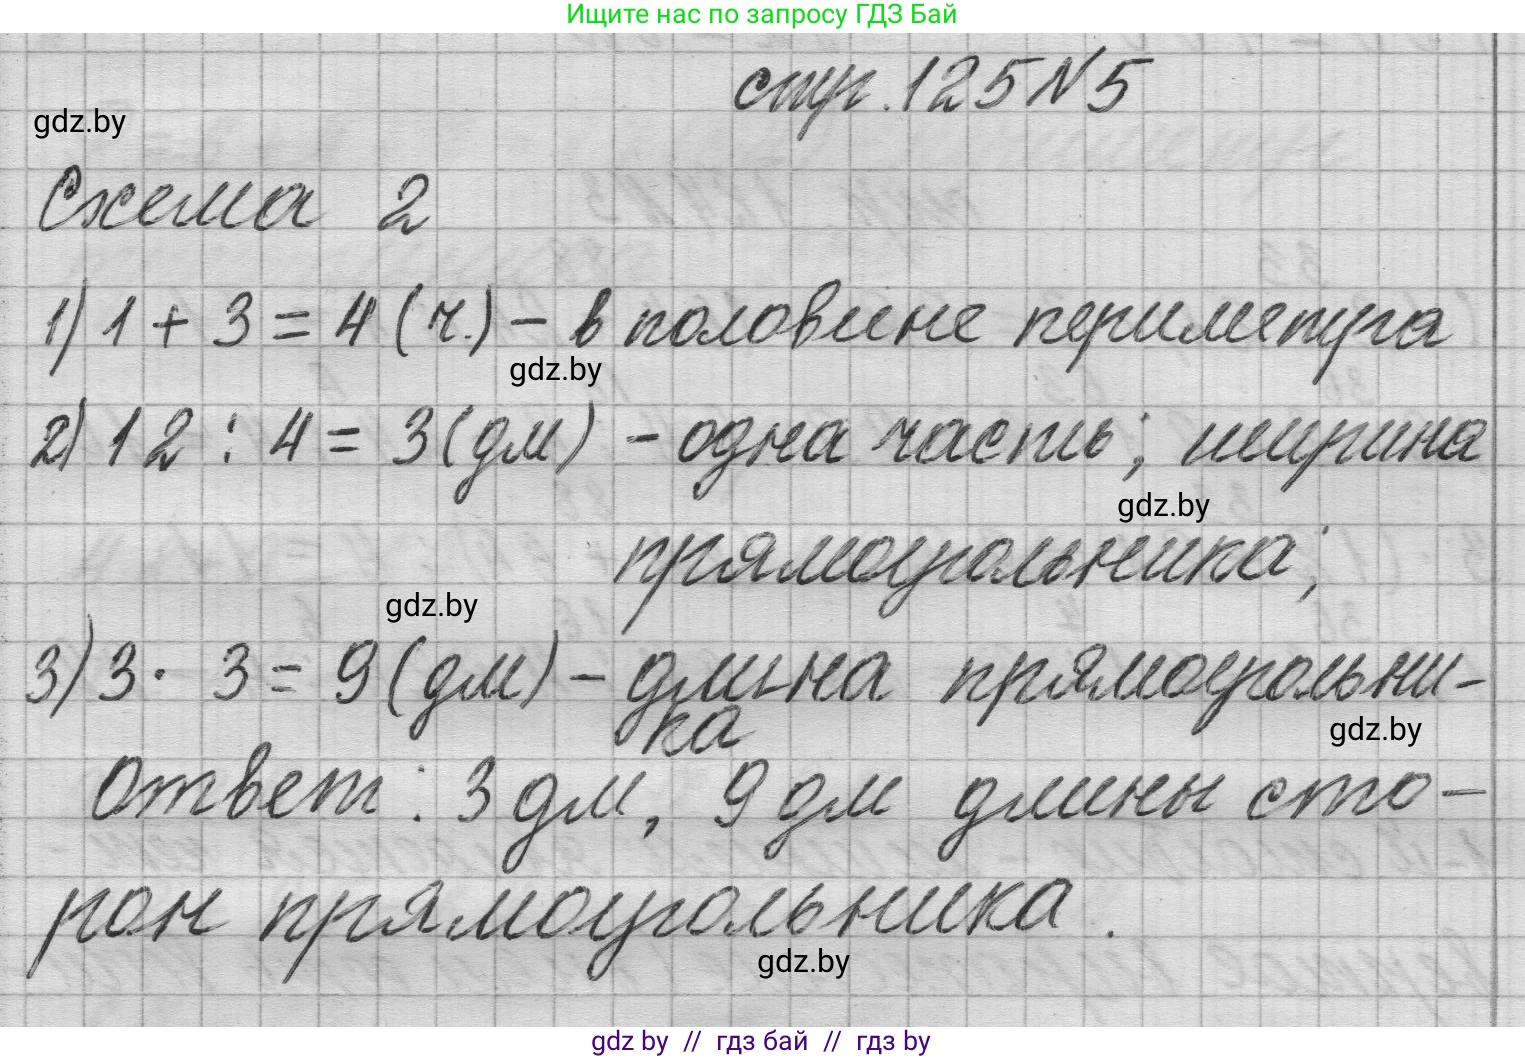 Ищите нас по запросу ГДЗ Бай
стр. 125 N 5
gdz.by
Схема 2
1) 1 + 3 = 4 (ч.) - в половине периметра
gdz.by
2) 12 : 4 = 3 (дм) - одна часть; ширина
gdz.by
прямоугольника;
gdz.by
3) 3 · 3 = 9 (дм) - длина прямоугольни-
ка
gdz.by
Ответ: 3 дм, 9 дм длины сто-
рон прямоугольника.
gdz.by
gdz by // гдз бай // гдз by